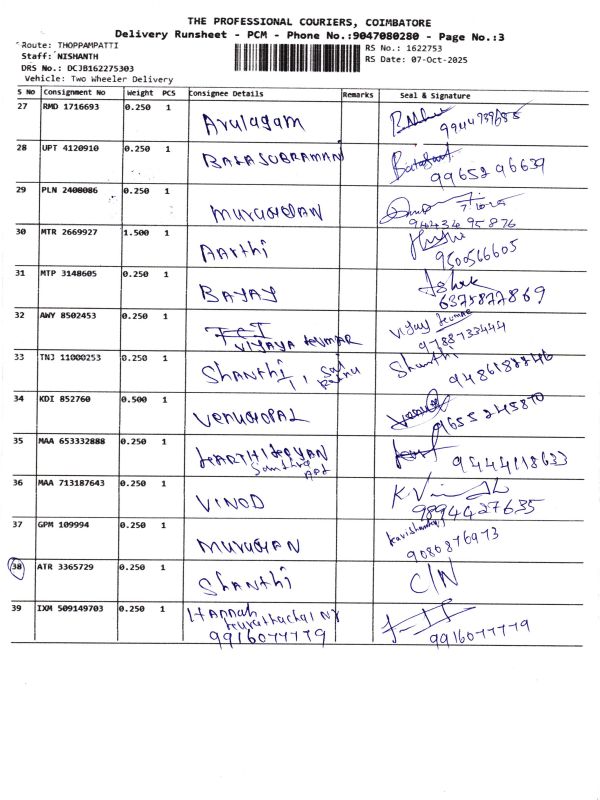 THE PROFESSIONAL COURIERS, COIMBATORE
Delivery Runsheet - PCM - Phone No.:9047080280 - Page No.:3
Route: THOPPAMPATTI
RS No.: 1622753
Staff: NISHANTH
RS Date: 07-Oct-2025
DRS No.: DCJB162275303
Vehicle: Two Wheeler Delivery
S No Consignment No Weight PCS Consignee Details Remarks Seal & Signature
27 RMD 1716693 0.250 1 Arulagam
28 UPT 4120910 0.250 1 BALASUBRAMANI 9965296639
29 PLN 2408086 0.250 1 MURUGESAN 9443495876
30 MTR 2669927 1.500 1 Aarthi 9500566605
31 MTP 3148605 0.250 1 6375877869
32 AWY 8502453 0.250 1 VIJAYA KUMAR Vijay Kumar
9788733444
33 TNJ 11000253 0.250 1 Shanthi Shanthi
34 KDI 852760 0.500 1 VENUGOPAL 9655245870
35 MAA 653332888 0.250 1
36 MAA 713187643 0.250 1 VINOD 9894427635
37 GPM 109994 0.250 1 MURUGAN
9080876973
38 ATR 3365729 0.250 1 Shanthi C/N
39 IXM 509149703 0.250 1 Hannah
9916077779 9916077779